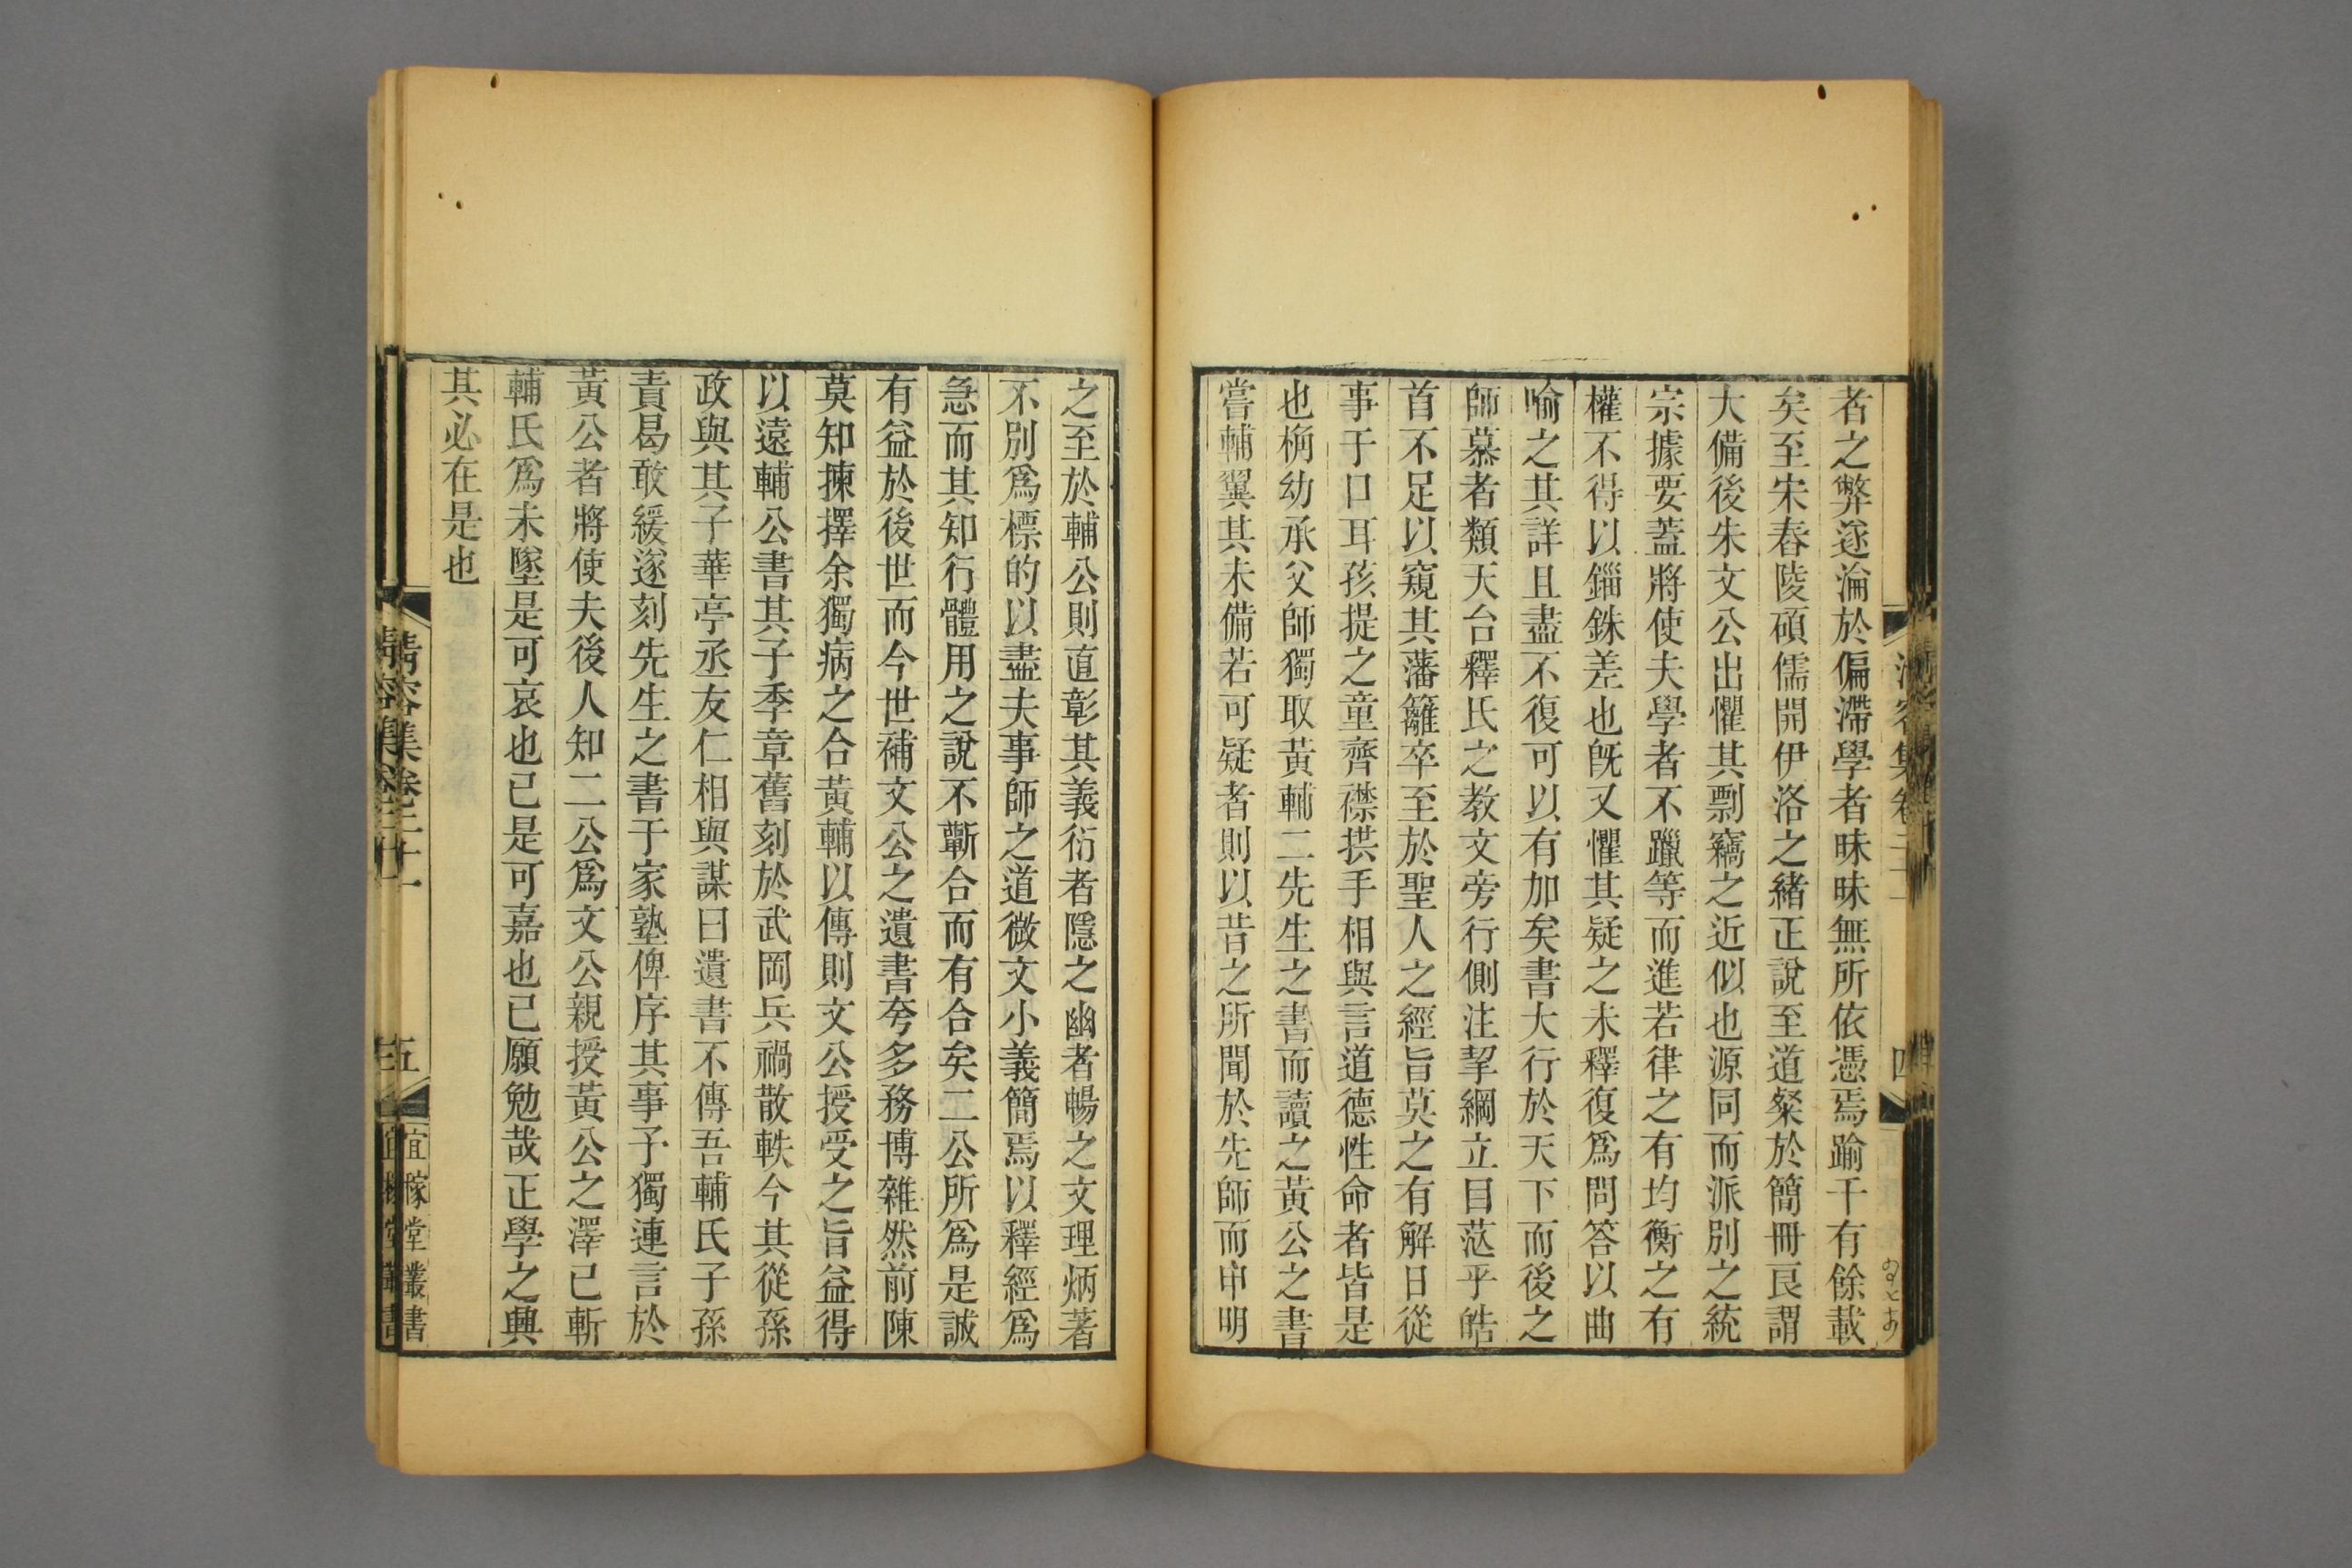 者之弊遂淪於偏滯學者昧昧無所依憑焉踰千有餘載
矣至宋舂陵碩儒開伊洛之緒正說至道粲於簡冊艮謂
大備後朱文公出懼其剽竊之近似也源同而派別之統
宗據要蓋將使夫學者不躐等而進若律之有均衡之有
權不得以錙銖差也旣又懼其疑之未釋復爲問答以曲
喻之其詳且盡不復可以有加矣書大行於天下而後之
師慕者類天台釋氏之教文旁行側注挈綱立目茫乎皓
首不足以窺其藩籬卒至於聖人之經旨莫之有解日從
事于口耳孩提之童齊襟拱手相與言道德性命者皆是
也桷幼承父師獨取黃輔二先生之書而讀之黃公之書
嘗輔翼其未備若可疑者則以昔之所聞於先師而申明
之至於輔公則直彰其義衍者隱之幽者暢之文理炳著
不別爲標的以盡夫事師之道微文小義簡焉以釋經爲
急而其知行體用之說不蘄合而有合矣二公所爲是誠
有益於後世而今世補文公之遺書夸多務博雜然前陳
莫知揀擇余獨病之合黃輔以傳則文公授受之旨益得
以遠輔公書其子季章舊刻於武岡兵禍散軼今其從孫
政與其子華亭丞友仁相與謀曰遺書不傳吾輔氏子孫
責曷敢緩遂刻先生之書于家塾俾序其事予獨連言於
黃公者將使夫後人知二公爲文公親授黃公之澤已斬
輔氏爲未墜是可哀也已是可嘉也已願勉哉正學之興
其必在是也
清容集卷二十一
五
宜稼堂叢書